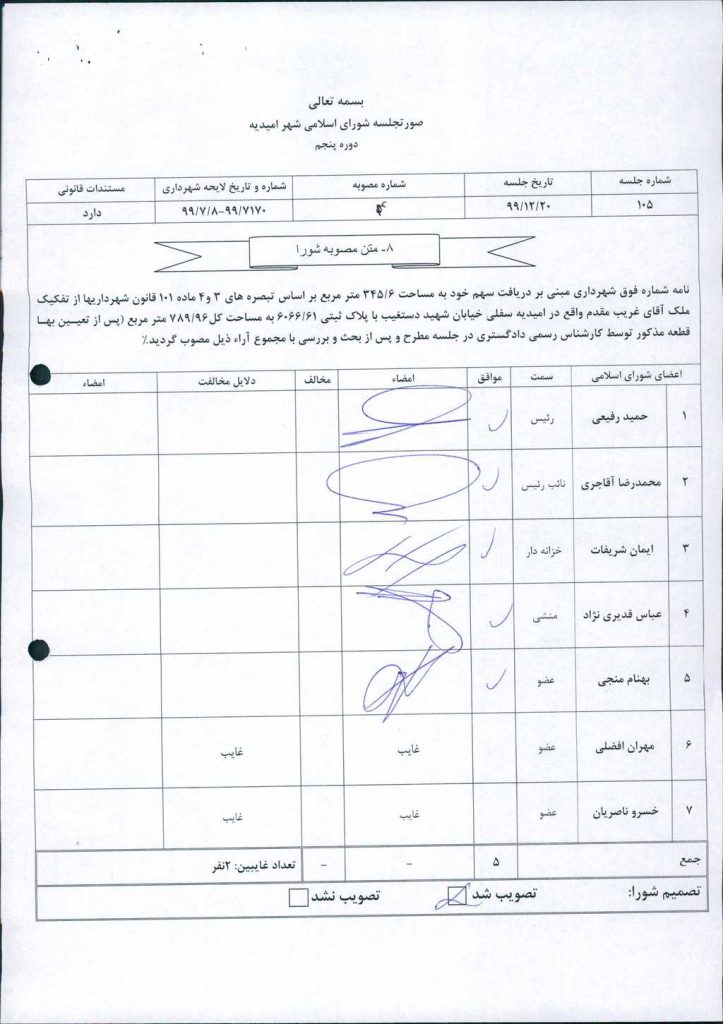 بسمه تعالی
صورتجلسه شورای اسلامی شهر امیدیه
دوره پنجم
شماره جلسه تاریخ جلسه شماره مصوبه شماره و تاریخ لایحه شهرداری مستندات قانونی
۱۰۵ ۹۹/۱۲/۲۰ ۹۹/۷/۸-۹۹/۷۱۷۰ دارد
۸- متن مصوبه شورا
نامه شماره فوق شهرداری مبنی بر دریافت سهم خود به مساحت ۳۴۵/۶ متر مربع بر اساس تبصره های ۳ و۴ ماده ۱۰۱ قانون شهرداریها از تفکیک
ملک آقای غریب مقدم واقع در امیدیه سفلی خیابان شهید دستغیب با پلاک ثبتی ۶۰۶۶/۶۱ به مساحت کل۷۸۹/۹۶ متر مربع (پس از تعیین بها
قطعه مذکور توسط کارشناس رسمی دادگستری در جلسه مطرح و پس از بحث و بررسی با مجموع آراء ذیل مصوب گردید٪
اعضای شورای اسلامی سمت موافق امضاء مخالف دلایل مخالفت امضاء
۱ حمید رفیعی رئیس
۲ محمدرضا آقاجری نائب رئیس
۳ ایمان شریفات خزانه دار
۴ عباس قدیری نژاد منشی
۵ بهنام منجی عضو
۶ مهران افضلی عضو غایب غایب
۷ خسرو ناصریان عضو غایب غایب
جمع ۵ - - تعداد غایبین: ۲نفر
تصمیم شورا: تصویب شد تصویب نشد